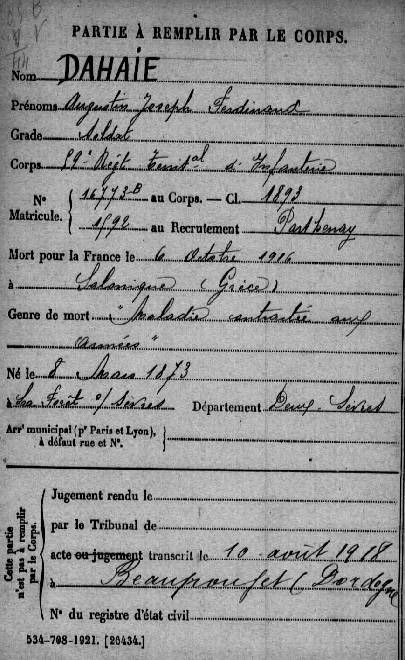 PARTIE À REMPLIR PAR LE CORPS.
Nom DAHAIE
Prénoms Augustin Joseph Ferdinand
Grade Soldat
Corps 92e Régt Territal d'Infanterie
No Matricule. 16773B au Corps. — Cl. 1893
1592 au Recrutement Parthenay
Mort pour la France le 6 Octobre 1916
à Salonique (Grèce)
Genre de mort "Maladie contractée aux
armées"
Né le 8 Mars 1873
à La Forêt s/ Sèvres Département Deux-Sèvres
Arrt municipal (pr Paris et Lyon),
à défaut rue et No.
Cette partie n'est pas à remplir par le Corps.
Jugement rendu le
par le Tribunal de
acte ou jugement transcrit le 10 août 1918
à (Dordogne
No du registre d'état civil
534-708-1921. [26434.]